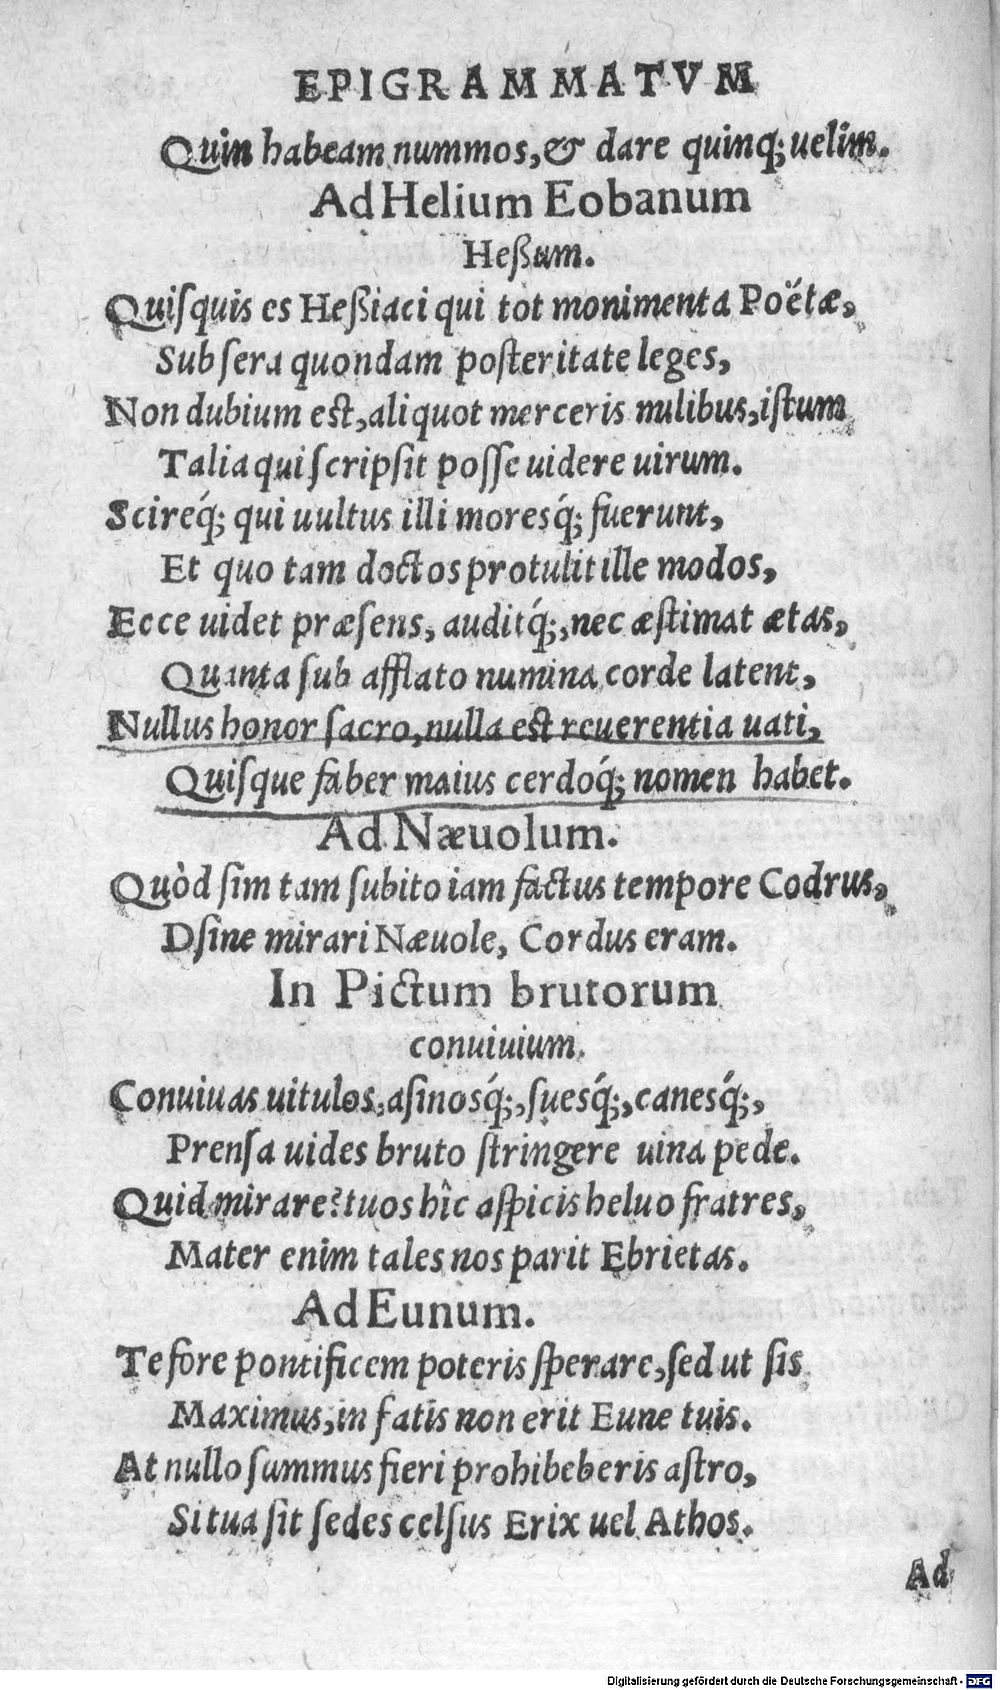 EPIGRAMMATVM
Quin habeam nummos, & dare quinq; uelim.
Ad Helium Eobanum
Heßum.
Quiſquis es Heßiaci qui tot monimenta Poëtæ,
Sub ſera quondam poſteritate leges,
Non dubium eſt, aliquot merceris milibus, iſtum
Talia qui ſcripſit poſſe uidere uirum.
Scireq́; qui uultus illi moresq́; fuerunt,
Et quo tam doctos protulit ille modos,
Ecce uidet præſens, auditq́;, nec æſtimat ætas,
Quanta ſub afflato numina corde latent,
Nullus honor ſacro, nulla eſt reuerentia uati,
Quiſque faber maius cerdoq́; nomen habet.
Ad Næuolum.
Quòd ſim tam ſubito iam factus tempore Codrus,
Dſine mirari Næuole, Cordus eram.
In Pictum brutorum
conuiuium.
Conuiuas uitulos, aſinosq́;, ſuesq́;, canesq́;,
Prenſa uides bruto ſtringere uina pede.
Quid mirare? tuos hîc aſpicis heluo fratres,
Mater enim tales nos parit Ebrietas.
Ad Eunum.
Te fore pontificem poteris ſperare, ſed ut ſis
Maximus, in fatis non erit Eune tuis.
At nullo ſummus fieri prohibeberis aſtro,
Si tua ſit ſedes celſus Erix uel Athos.
Ad
Digitalisierung gefördert durch die Deutsche Forschungsgemeinschaft - DFG